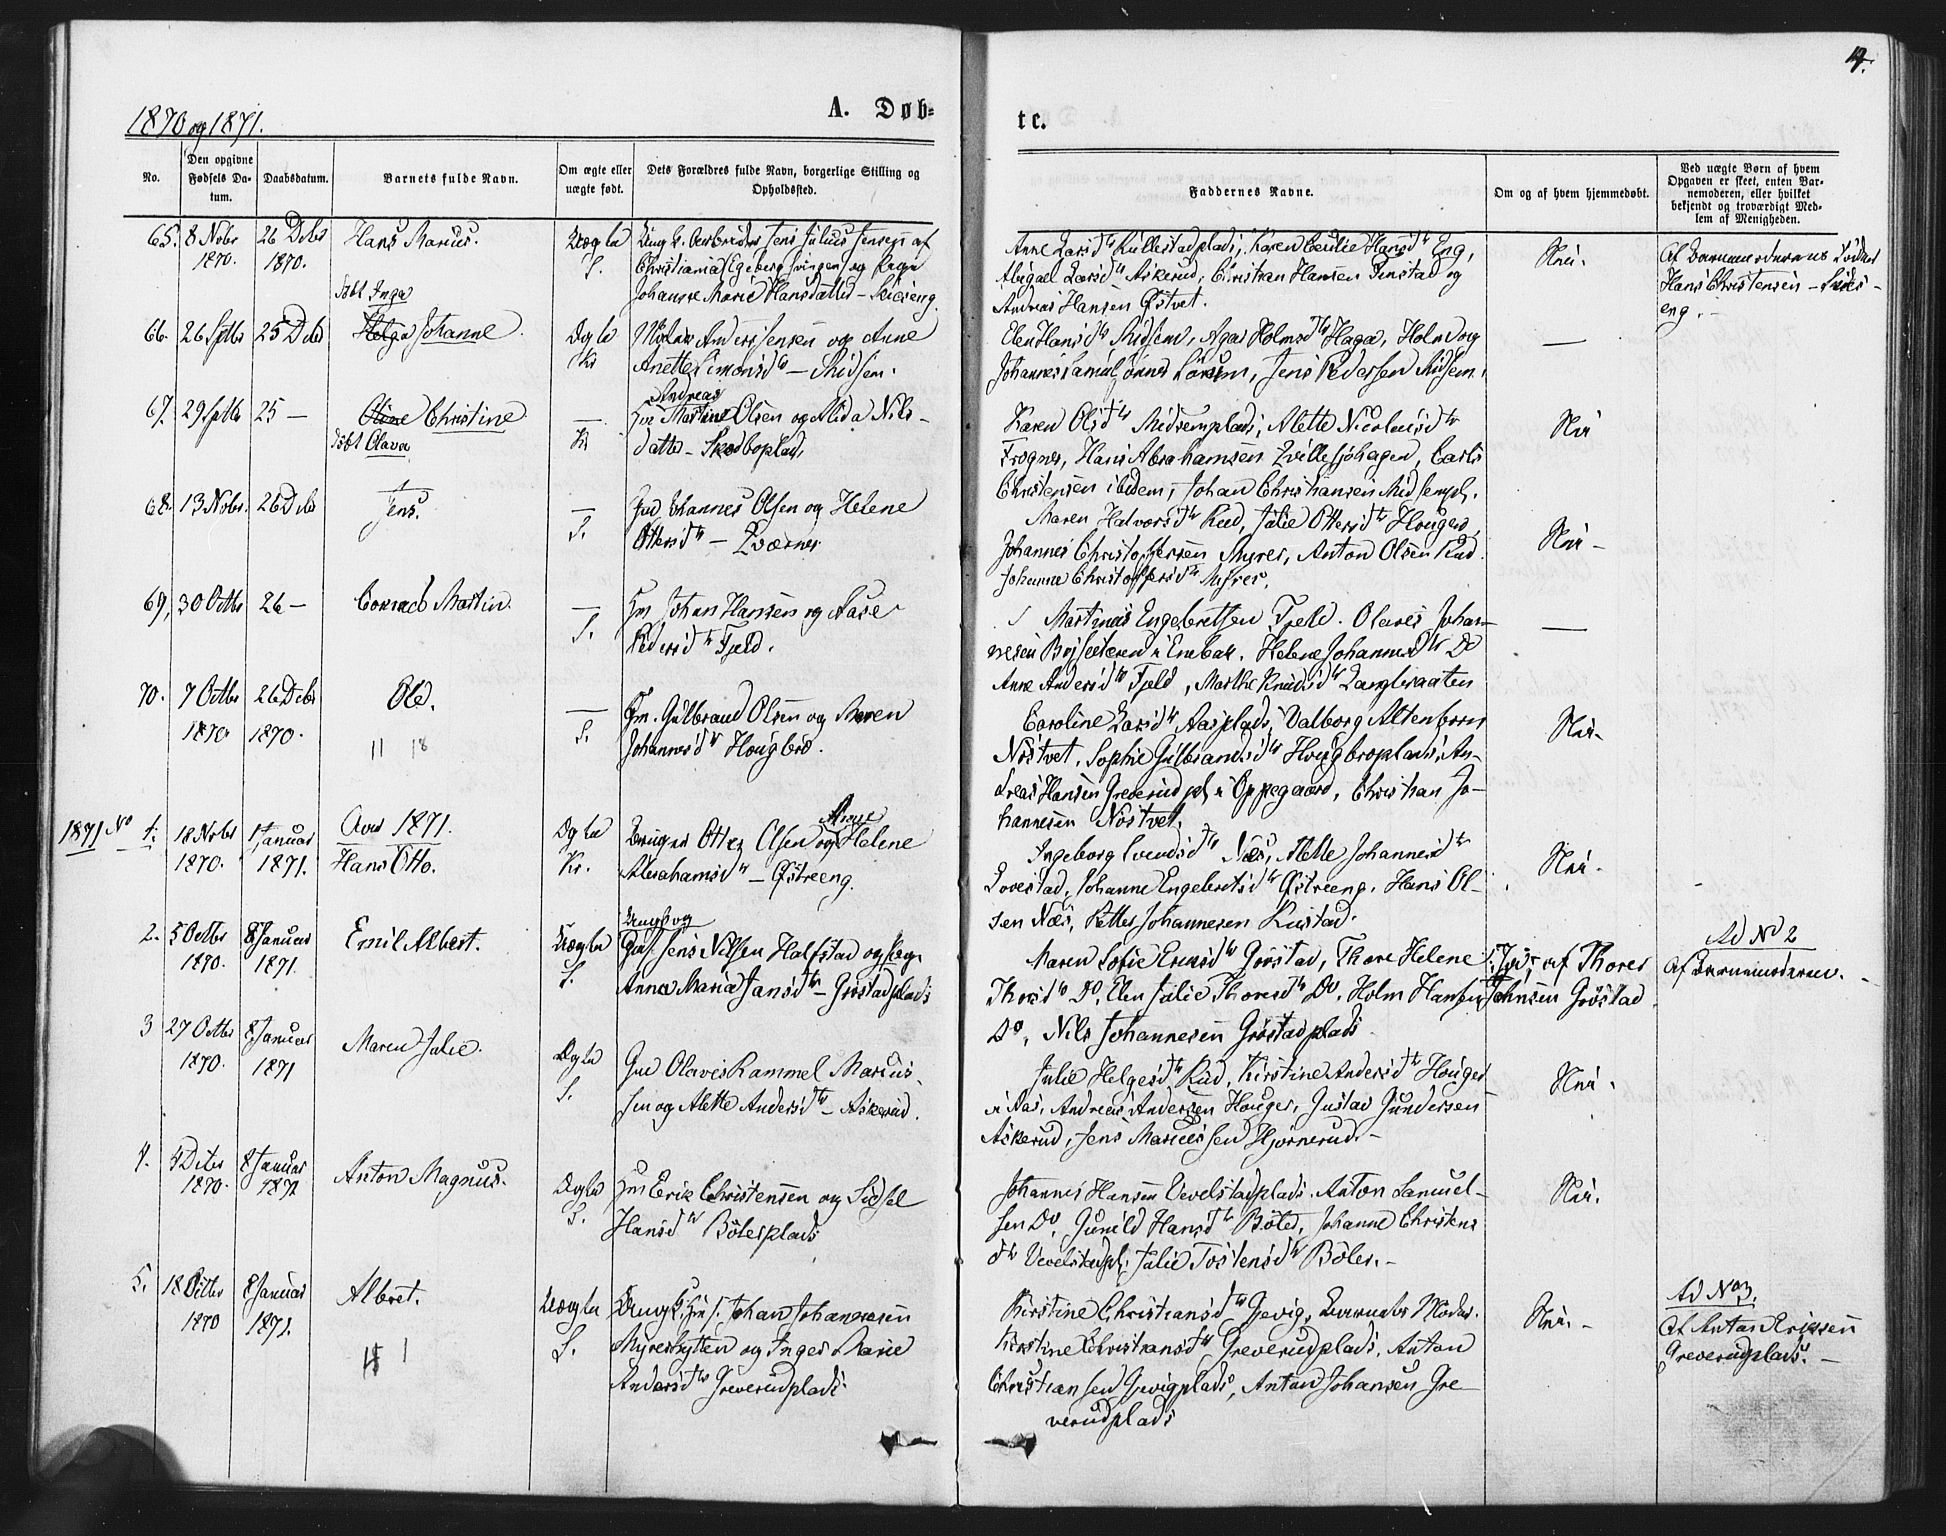 4.
1870 og 1871.
A. Døb-
te.
No.
Den opgivne Fødsels Da-tum.
Daabsdatum.
Barnets fulde Navn.
Om ægte eller uægte født.
Dets Forældres fulde Navn, borgerlige Stilling og Opholdssted.
Faddernes Navne.
Om og af hvem hjemmedøbt.
Ved uægte Børn af hvem Opgaven er skeet, enten Bar-nemoderen, eller hvilket bekjendt og troværdigt Med-lem af Menigheden.
65. 8 Nobr 1870. 26 Debr 1870. Hans Marius. Uægte S.
Ungk. Arbeider Jens Julius Jensen af
Christiania (Egeberg svingen) og Pige
Johanne Marie Hansdatter - Skiseng
Anne Larsdtr Kullestadplads, Karen Cecilie Hansdtr Eng,
Abigael Larsdtr Askerud, Christian Hansen Finstad og
Andreas Hansen Østvet.
Nei.
Af Barnemoderens Fader
Hans Christensen - Skis-
eng. -
døbt Inga
66. 26 Sptbr 25 Debr Helga Johanne. Ægte Kr
Anders Jensen og Anne
Anette Simonsdtr - Midsem.
Elen Hansdtr Midsem, Agar Holmsdtr Haga, Holm og
Johannes Samuelsønner Løken, Jens Pedersen Midsem.
—
67. 29 Sptbr 25 — Oline Christine
døbt Olava
— Kr
Andreas
Hm Martin Olsen og Alida Nils-
datter - Skodboplads,
Karen Olsdtr Midsemplads, Alette Nicolaisdtr
Frogner, Hans Abrahamsen Lillesjøhagen, Carl
Christensen ibidem, Johan Christiansen Midsempl.
Nei
68. 13 Nobr. 26 Debr Jens. — S.
Gmd Johannes Olsen og Helene
Ottersdtr - Kværner
Maren Halvorsdtr Rud, Julie Ottersdtr Houger,
Johannes Christoffersen Myrer, Anton Olsen Rud.
Johanne Christoffersdtr Myrer.
Nei -
69, 30 Octbr 26 — Conrad Martin. — S.
Hm Johan Hansen og Aase
Pedersdtr Fjeld.
Martinus Engebretsen Fjeld. Olaves Johan-
nesen Bøjseteren i Enebak. Helene Johannesdtr Do
Anne Andersdtr Fjeld, Marthe Knudsdtr Langliraaten
—
70. 7 Octbr 1870 26 Debr 1870. Ole. — S.
Hm. Gulbrand Olsen og Maren
Johannesdtr Hougbro.
11 18
Caroline Larsdtr Aasplads, Valborg Altenborn
Nøstvet, Sophie Gulbrandsdtr Hougbroplads, An-
dreas Hansen Greverud pl. i Oppegaard, Christian Jo-
hannesen Nøstvet.
Nei.
1871 No 1. 18 Nobr 1870. 1 Januar 1871. Aar 1871.
Hans Otto.
Ægte Kr.
Anne
Bruger Otter Olsen og Helene
Abrahamsdtr - Østreeng.
Ingeborg Svendsdtr Næs, Alette Johannesdtr
Lovestad, Johanne Engebretsdtr Østreeng, Hans Ol-
sen Næs, Petter Johannesen Kustad.
Nei.
2. 5 Octbr 1870. 8 Januar 1871. Emil Albert. Uægte S.
Ungk og
Gaf. Jens Nilsen Halfstad og Pige
Anne Marie Jansdtr - Grøstadplads
Maren Sofie Eriksdtr Grøstad, Thore Helene
Thorsdtr Do, Elen Julie Thoresdtr Do, Holm Hansen
Do, Nils Johannesen Grøstadplads
Ja, af Thores
Johnsen Grøstad
Ad No 2
Af Barnemoderen. -
3 27 Octbr 1870. 8 Januar 1871 Maren Julie. Ægte S.
Gmd Olaves Rammel Marius-
sen og Alette Andersdtr - Askerud.
Julie Helgesdtr Rud, Kirstine Andersdtr Houger
i Aas, Andreas Andersen Houger, Gustav Gundersen
Askerud, Jens Mariussen Hjørnerud. -
Nei.
4. 4 Debr 1870. 8 Januar 1871 Anton Magnus. Ægte S.
Hm Erik Christensen og Sidsel
Hansdtr Bølerplads
Johannes Hansen Vevelstadplads. Anton Samuel-
sen Do, Gunild Hansdtr Bøler, Johanne Christens
dtr Vevelstadpl. Julie Tostensdtr Bøler. -
Nei.
5. 18 Octbr 1870 8 Januar 1871. Albret. Uægte S.
Ungk. Hm s. Johan Johannesen
Myrerhytten og Inger Marie
Andersdtr Greverudplads.
Kirstine Christiansdtr Gjevig, Barnets Moder.
Kirstine Christiansdtr Greverudplads, Anton
Christiansen Gjevigplads, Anton Johansen Gre-
verudplads
Nei. -
Ad No 3.
Af Anton Eriksen
Greverudplads. -